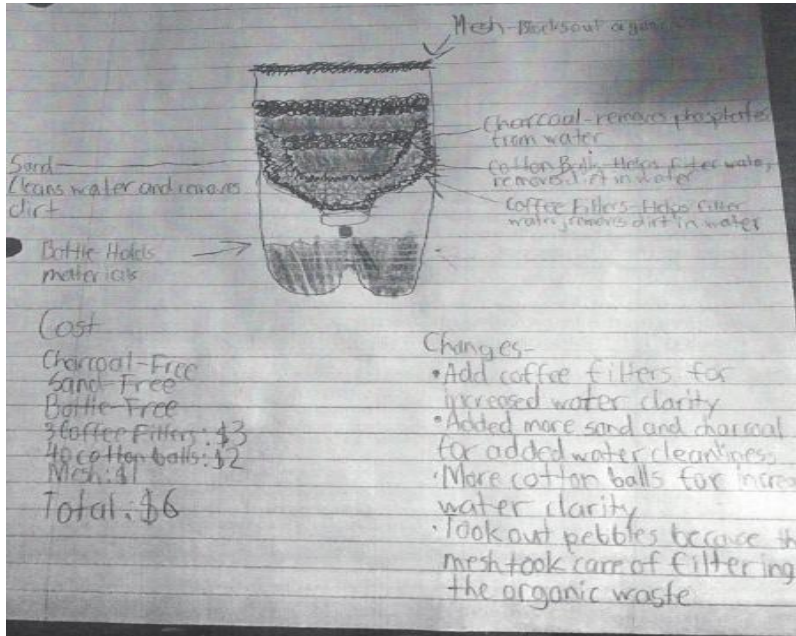 Mesh-Blocks out
Charcoal-removes phosphates
from water
Sand
Cleans water and removes
dirt
Cotton Balls-Helps filter water,
removes dirt in water
Coffee Filters-Helps filter
water, removes dirt in water
Bottle Holds
materials
Cost
Charcoal-Free
Sand-Free
Bottle-Free
3 Coffee Filters: $3
40 cotton balls: $2
Mesh: $1
Total: $6
Changes-
• Add coffee filters for
increased water clarity
• Added more sand and charcoal
for added water cleanliness
• More cotton balls for
water clarity
• Took out pebbles because
mesh took care of filtering
the organic waste